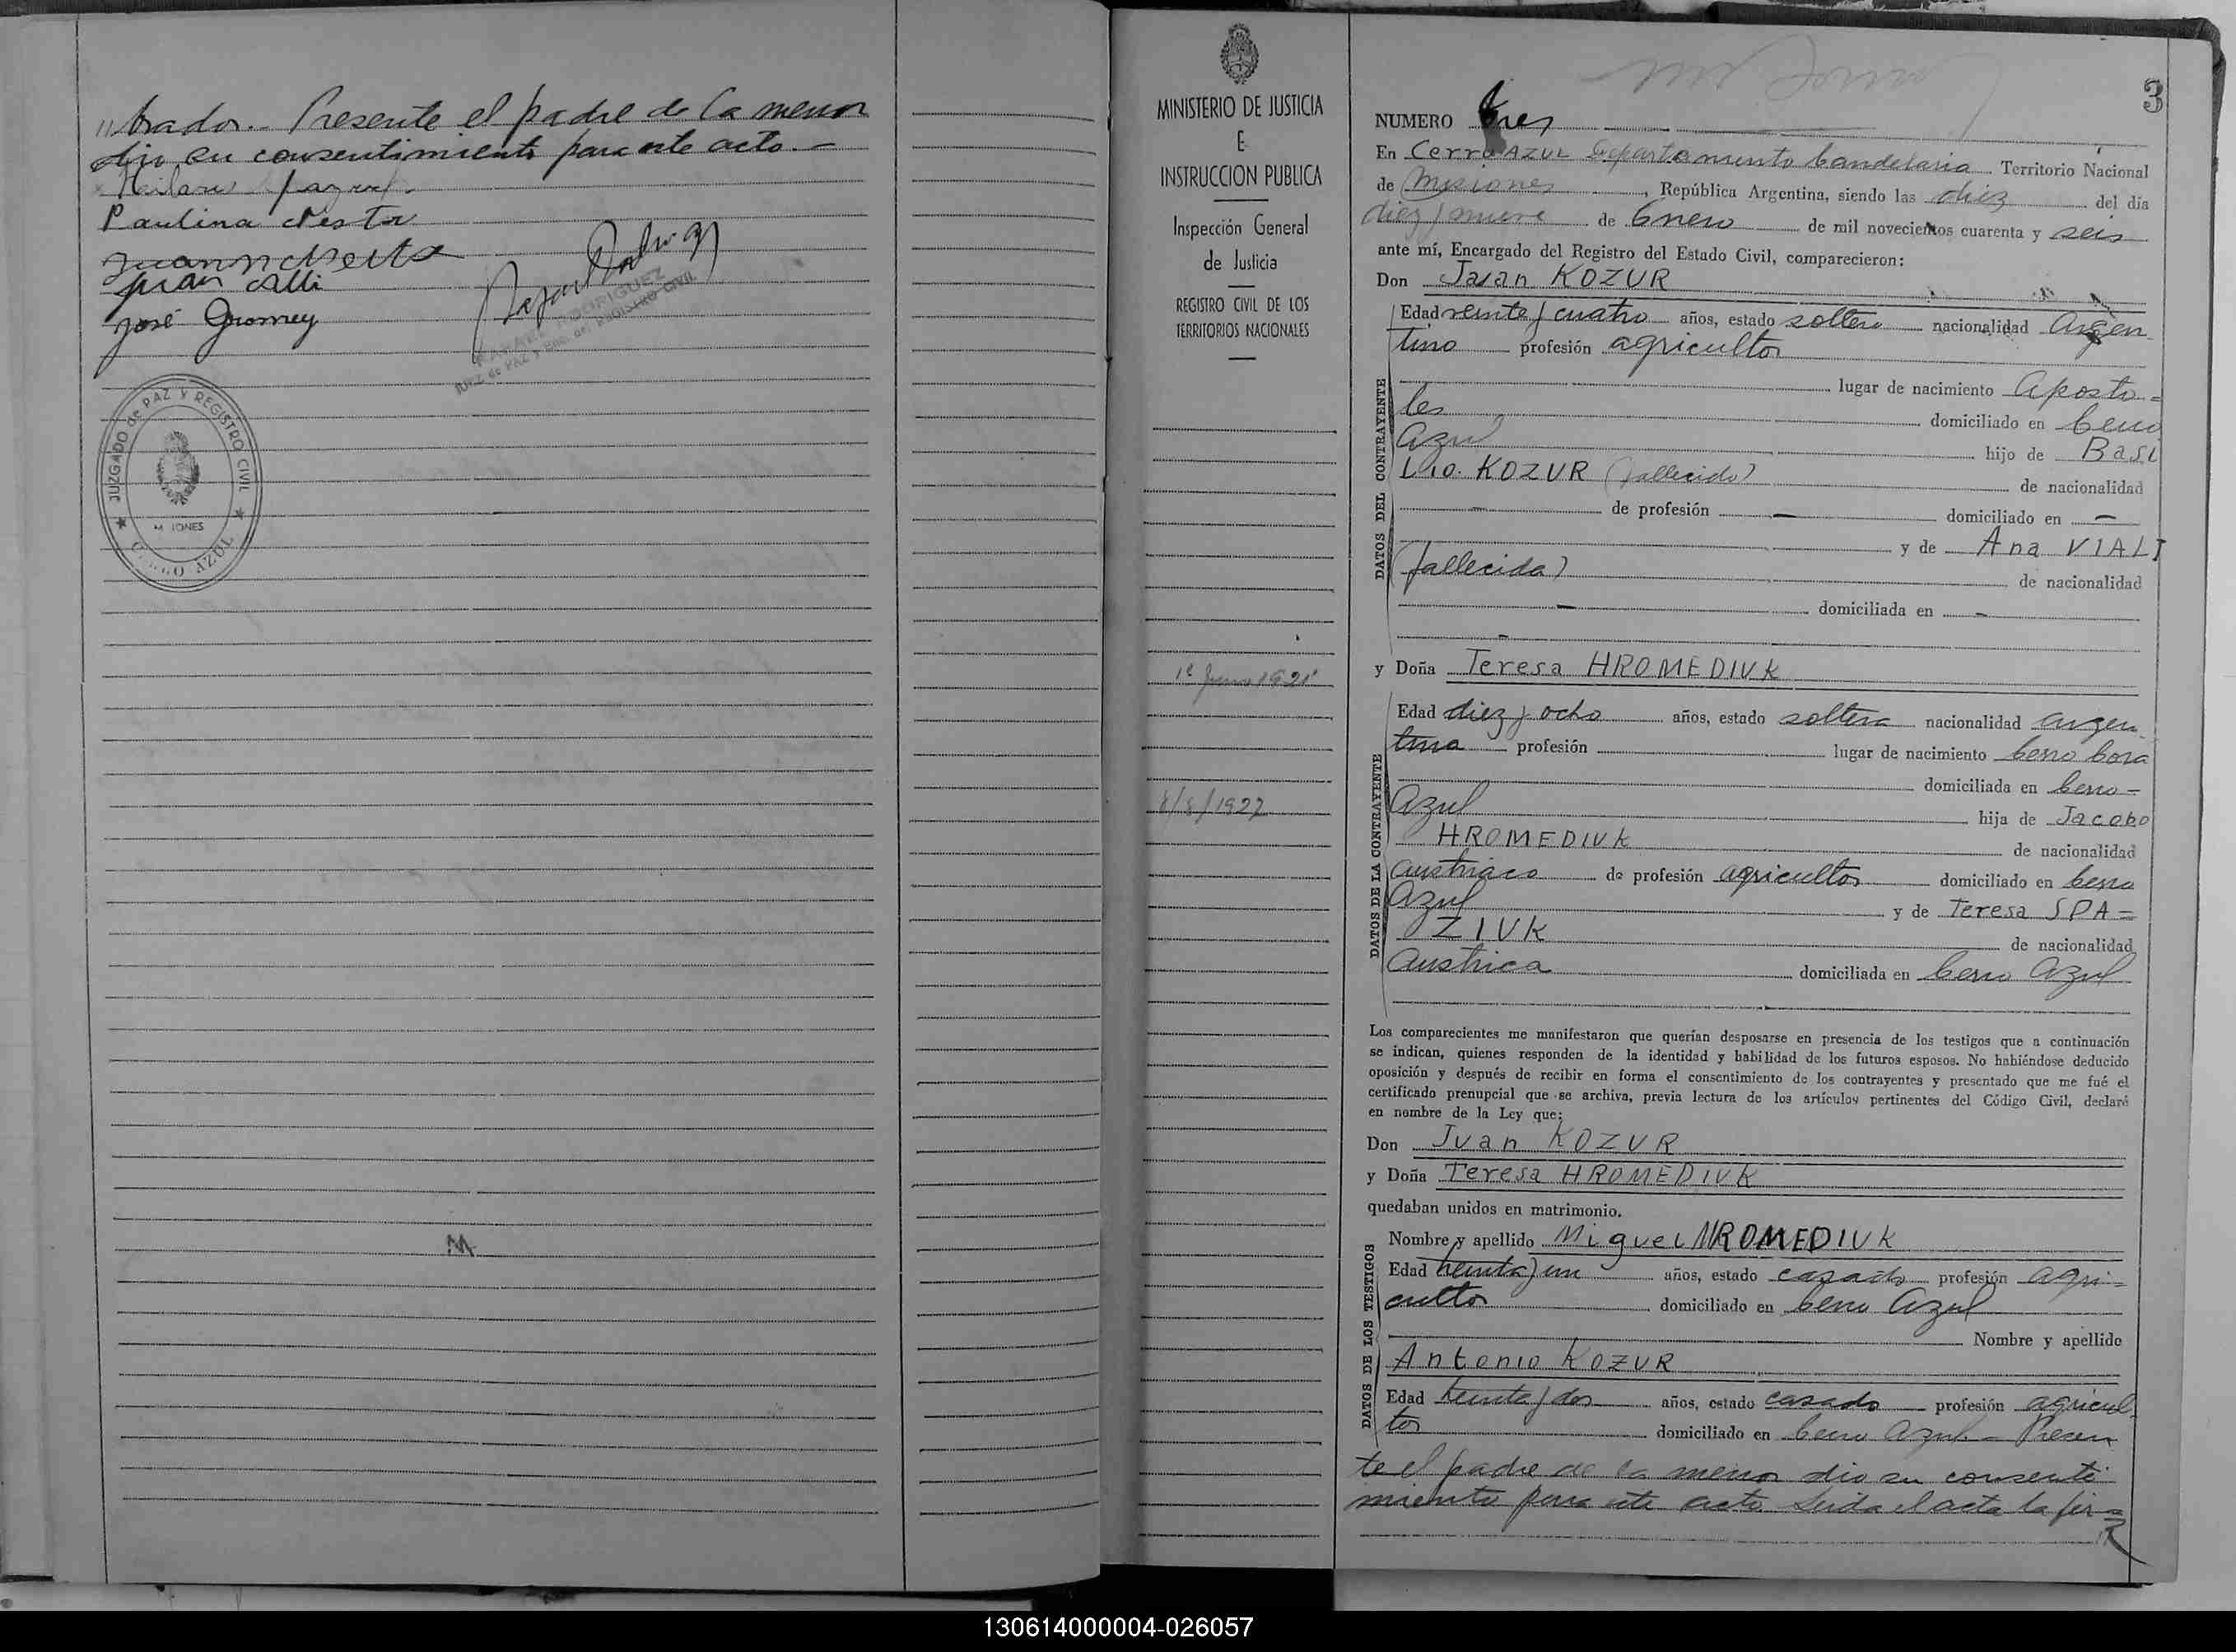 //brador.- Presente el padre de la menor
dio su consentimiento para este acto.-
Paulina Nesta
Juan Alli
José Gromey
RAFAEL RODRIGUEZ
JUEZ de PAZ y Enc. del REGISTRO CIVIL
JUZGADO de PAZ Y REGISTRO CIVIL
MISIONES
CERRO AZUL
MINISTERIO DE JUSTICIA
E
INSTRUCCION PUBLICA
Inspección General
de Justicia
REGISTRO CIVIL DE LOS
TERRITORIOS NACIONALES
1921
8/8/1927
3
NUMERO tres
En Cerro AZUL Departamento Candelaria Territorio Nacional
de Misiones, República Argentina, siendo las diez del día
diez y nueve de Enero de mil novecientos cuarenta y seis
ante mí, Encargado del Registro del Estado Civil, comparecieron:
Don Juan KOZUR
DATOS DEL CONTRAYENTE
Edad veinte y cuatro años, estado soltero nacionalidad Argen
tino profesión agricultor
lugar de nacimiento Aposto=
les domiciliado en Cerro
Azul hijo de Basi
Lio KOZUR (fallecido) de nacionalidad
— de profesión — domiciliado en —
y de Ana VIALI
(fallecida) de nacionalidad
— domiciliada en —
—
y Doña Teresa HROMEDIUK
DATOS DE LA CONTRAYENTE
Edad diez y ocho años, estado soltera nacionalidad argen
tina profesión lugar de nacimiento Cerro Cora
domiciliada en Cerro=
Azul hija de Jacobo
HROMEDIUK de nacionalidad
austriaco de profesión agricultor domiciliado en Cerro
Azul y de Teresa SPA=
ZIUK de nacionalidad
austrica domiciliada en Cerro Azul
Los comparecientes me manifestaron que querían desposarse en presencia de los testigos que a continuación
se indican, quienes responden de la identidad y habilidad de los futuros esposos. No habiéndose deducido
oposición y después de recibir en forma el consentimiento de los contrayentes y presentado que me fué el
certificado prenupcial que se archiva, previa lectura de los artículos pertinentes del Código Civil, declaré
en nombre de la Ley que:
Don Juan KOZUR
y Doña Teresa HROMEDIUK
quedaban unidos en matrimonio.
DATOS DE LOS TESTIGOS
Nombre y apellido Miguel HROMEDIUK
Edad treinta y un años, estado casado profesión agri=
cultor domiciliado en Cerro Azul
Nombre y apellido
Antonio KOZUR
Edad treinta y dos años, estado casado profesión agricul
tor domiciliado en Cerro Azul.- Presen
te el padre de la menor dio su consenti
miento para este acto Leida el acta la fir=
130614000004-026057